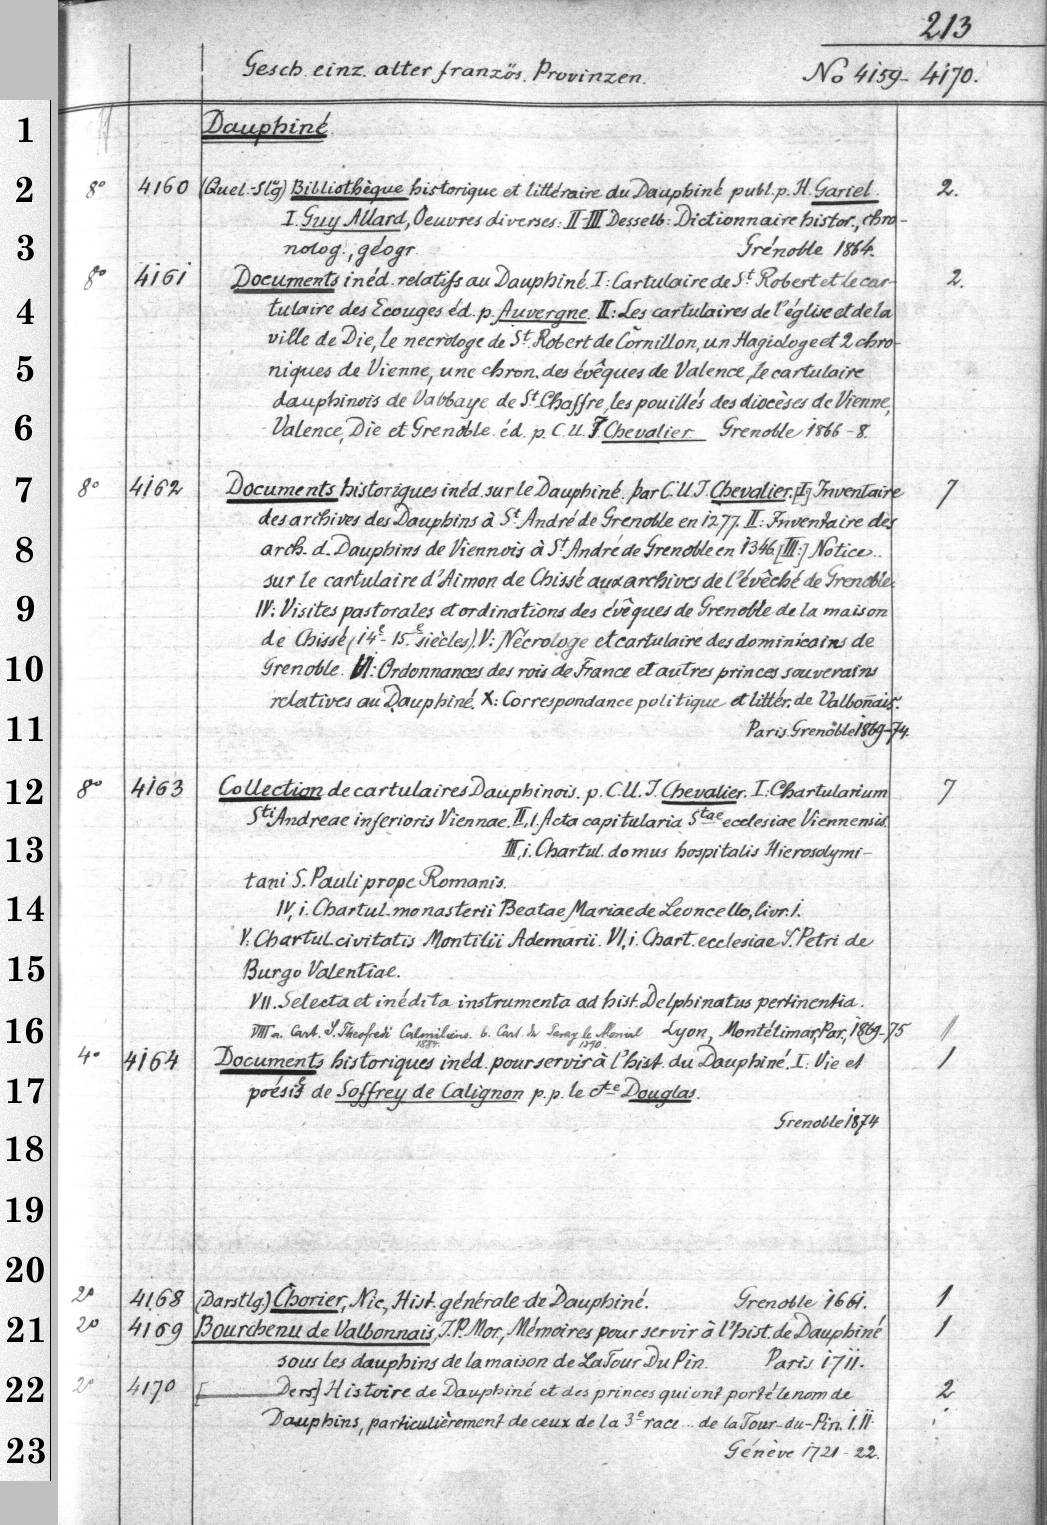 213
Gesch. einz. alter französ. Provinzen. No 4159-4170.
1 Dauphiné
2 8° 4160 (Quel.-Slg) Bibliothèque historique et littéraire du Dauphiné publ. p. H. Gariel. 2.
I. Guy Allard, Oeuvres diverses: II-III Desselb: Dictionnaire histor., chro-
3 nolog., géogr. Grénoble 1864.
8° 4161 Documents inéd. relatifs au Dauphiné. I: Cartulaire de St. Robert et le car- 2.
4 tulaire des Ecouges éd. p. Auvergne. II: Les cartulaires de l'église et de la
ville de Die, le necrologe de St. Robert de Cornillon, un Hagiologe et 2 chro-
5 niques de Vienne, une chron. des évêques de Valence, le cartulaire
dauphinois de l'abbaye de St. Chaffre, les pouillés des diocèses de Vienne,
6 Valence, Die et Grenoble. éd. p. C. U. J. Chevalier. Grenoble 1866-8.
7 8° 4162 Documents historiques inéd. sur le Dauphiné. par C. U. J. Chevalier. [I:] Inventaire 7
des archives des Dauphins à St. André de Grenoble en 1277. II: Inventaire des
8 arch. d. Dauphins de Viennois à St. André de Grenoble en 1346. [III:] Notice..
sur le cartulaire d'Aimon de Chissé aux archives de l'évêché de Grenoble.
9 IV: Visites pastorales et ordinations des évêques de Grenoble de la maison
de Chissé (14e-15e siècles). V: Nécrologe et cartulaire des dominicains de
10 Grenoble. VI: Ordonnances des rois de France et autres princes souverains
relatives au Dauphiné. X: Correspondance politique et littér. de Valbonnais.
11 Paris. Grenoble 1869-74.
12 8° 4163 Collection de cartulaires Dauphinois. p. C. U. J. Chevalier. I: Chartularium 7
Sti Andreae inferioris Viennae. II,1. Acta capitularia Stae ecclesiae Viennensis.
13 III,1. Chartul. domus hospitalis Hierosolymi-
tani S. Pauli prope Romanis.
14 IV,1. Chartul. monasterii Beatae Mariae de Leoncello, livr. 1.
V: Chartul. civitatis Montilii Ademarii. VI,1. Chart. ecclesiae S. Petri de
15 Burgo Valentiae.
VII. Selecta et inédita instrumenta ad hist. Delphinatus pertinentia.
16 VIII a. Cart. S. Theofredi Calmiliens. b. Cart. de Paray le Monial Lyon, Montélimar, Par., 1869-75 1
1890.
4° 4164 Documents historiques inéd. pour servir à l'hist. du Dauphiné. I: Vie et 1
17 poésies de Soffrey de Calignon p. p. le cte Douglas.
Grenoble 1874
18
19
20
2° 4168 (Darstlg.) Chorier, Nic., Hist. générale de Dauphiné. Grenoble 1661. 1
21 2° 4169 Bourchenu de Valbonnais, J. P. Mor., Mémoires pour servir à l'hist. de Dauphiné 1
sous les dauphins de la maison de La Tour Du Pin. Paris 1711.
22 2° 4170 [Ders] Histoire de Dauphiné et des princes qui ont porté le nom de 2
Dauphins, particulièrement de ceux de la 3e race ... de la Tour-du-Pin. I. II.
23 Génève 1721-22.